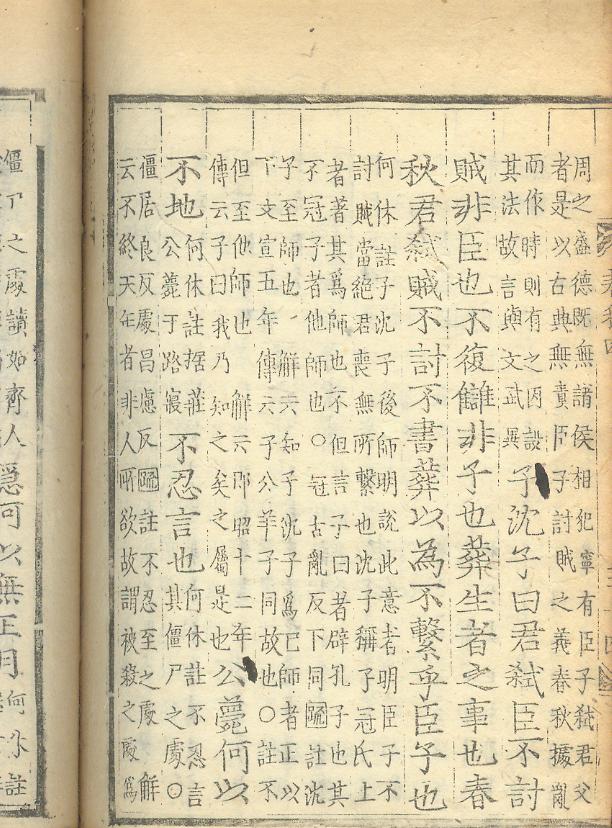 周之盛德既無諸侯相犯寧有臣子弒君父
者是以古典無責臣子討賊之義春秋據亂
而作時則有之因設
其法故言與文武異
子沈子曰君弒臣不討
賊非臣也不復讎非子也葬生者之事也春
秋君弒賊不討不書葬以為不繫乎臣子也
何休註子沈子後師明說此意者明臣子不
討賊當絕君喪無所繫也沈子稱子冠氏上
者著其為師也不但言子曰者辟孔子也其
不冠子者他師也○冠古亂反下同疏註沈
子至師也 解云知子沈子為已師者正以
下文宣五年傳云子公羊子同故也○註不
但至他師也 解云即昭十二年
傳云子曰我乃知之矣之屬是也
公薨何以
不地
何休註據莊
公薨于路寢
不忍言也
何休註不忍言
其僵尸之處○
僵居良反處昌慮反疏註不忍至之處 解
云不終天年者非人所欲故謂被殺之處為
僵尸之處讀如齊人
隱何以無正月
何休註